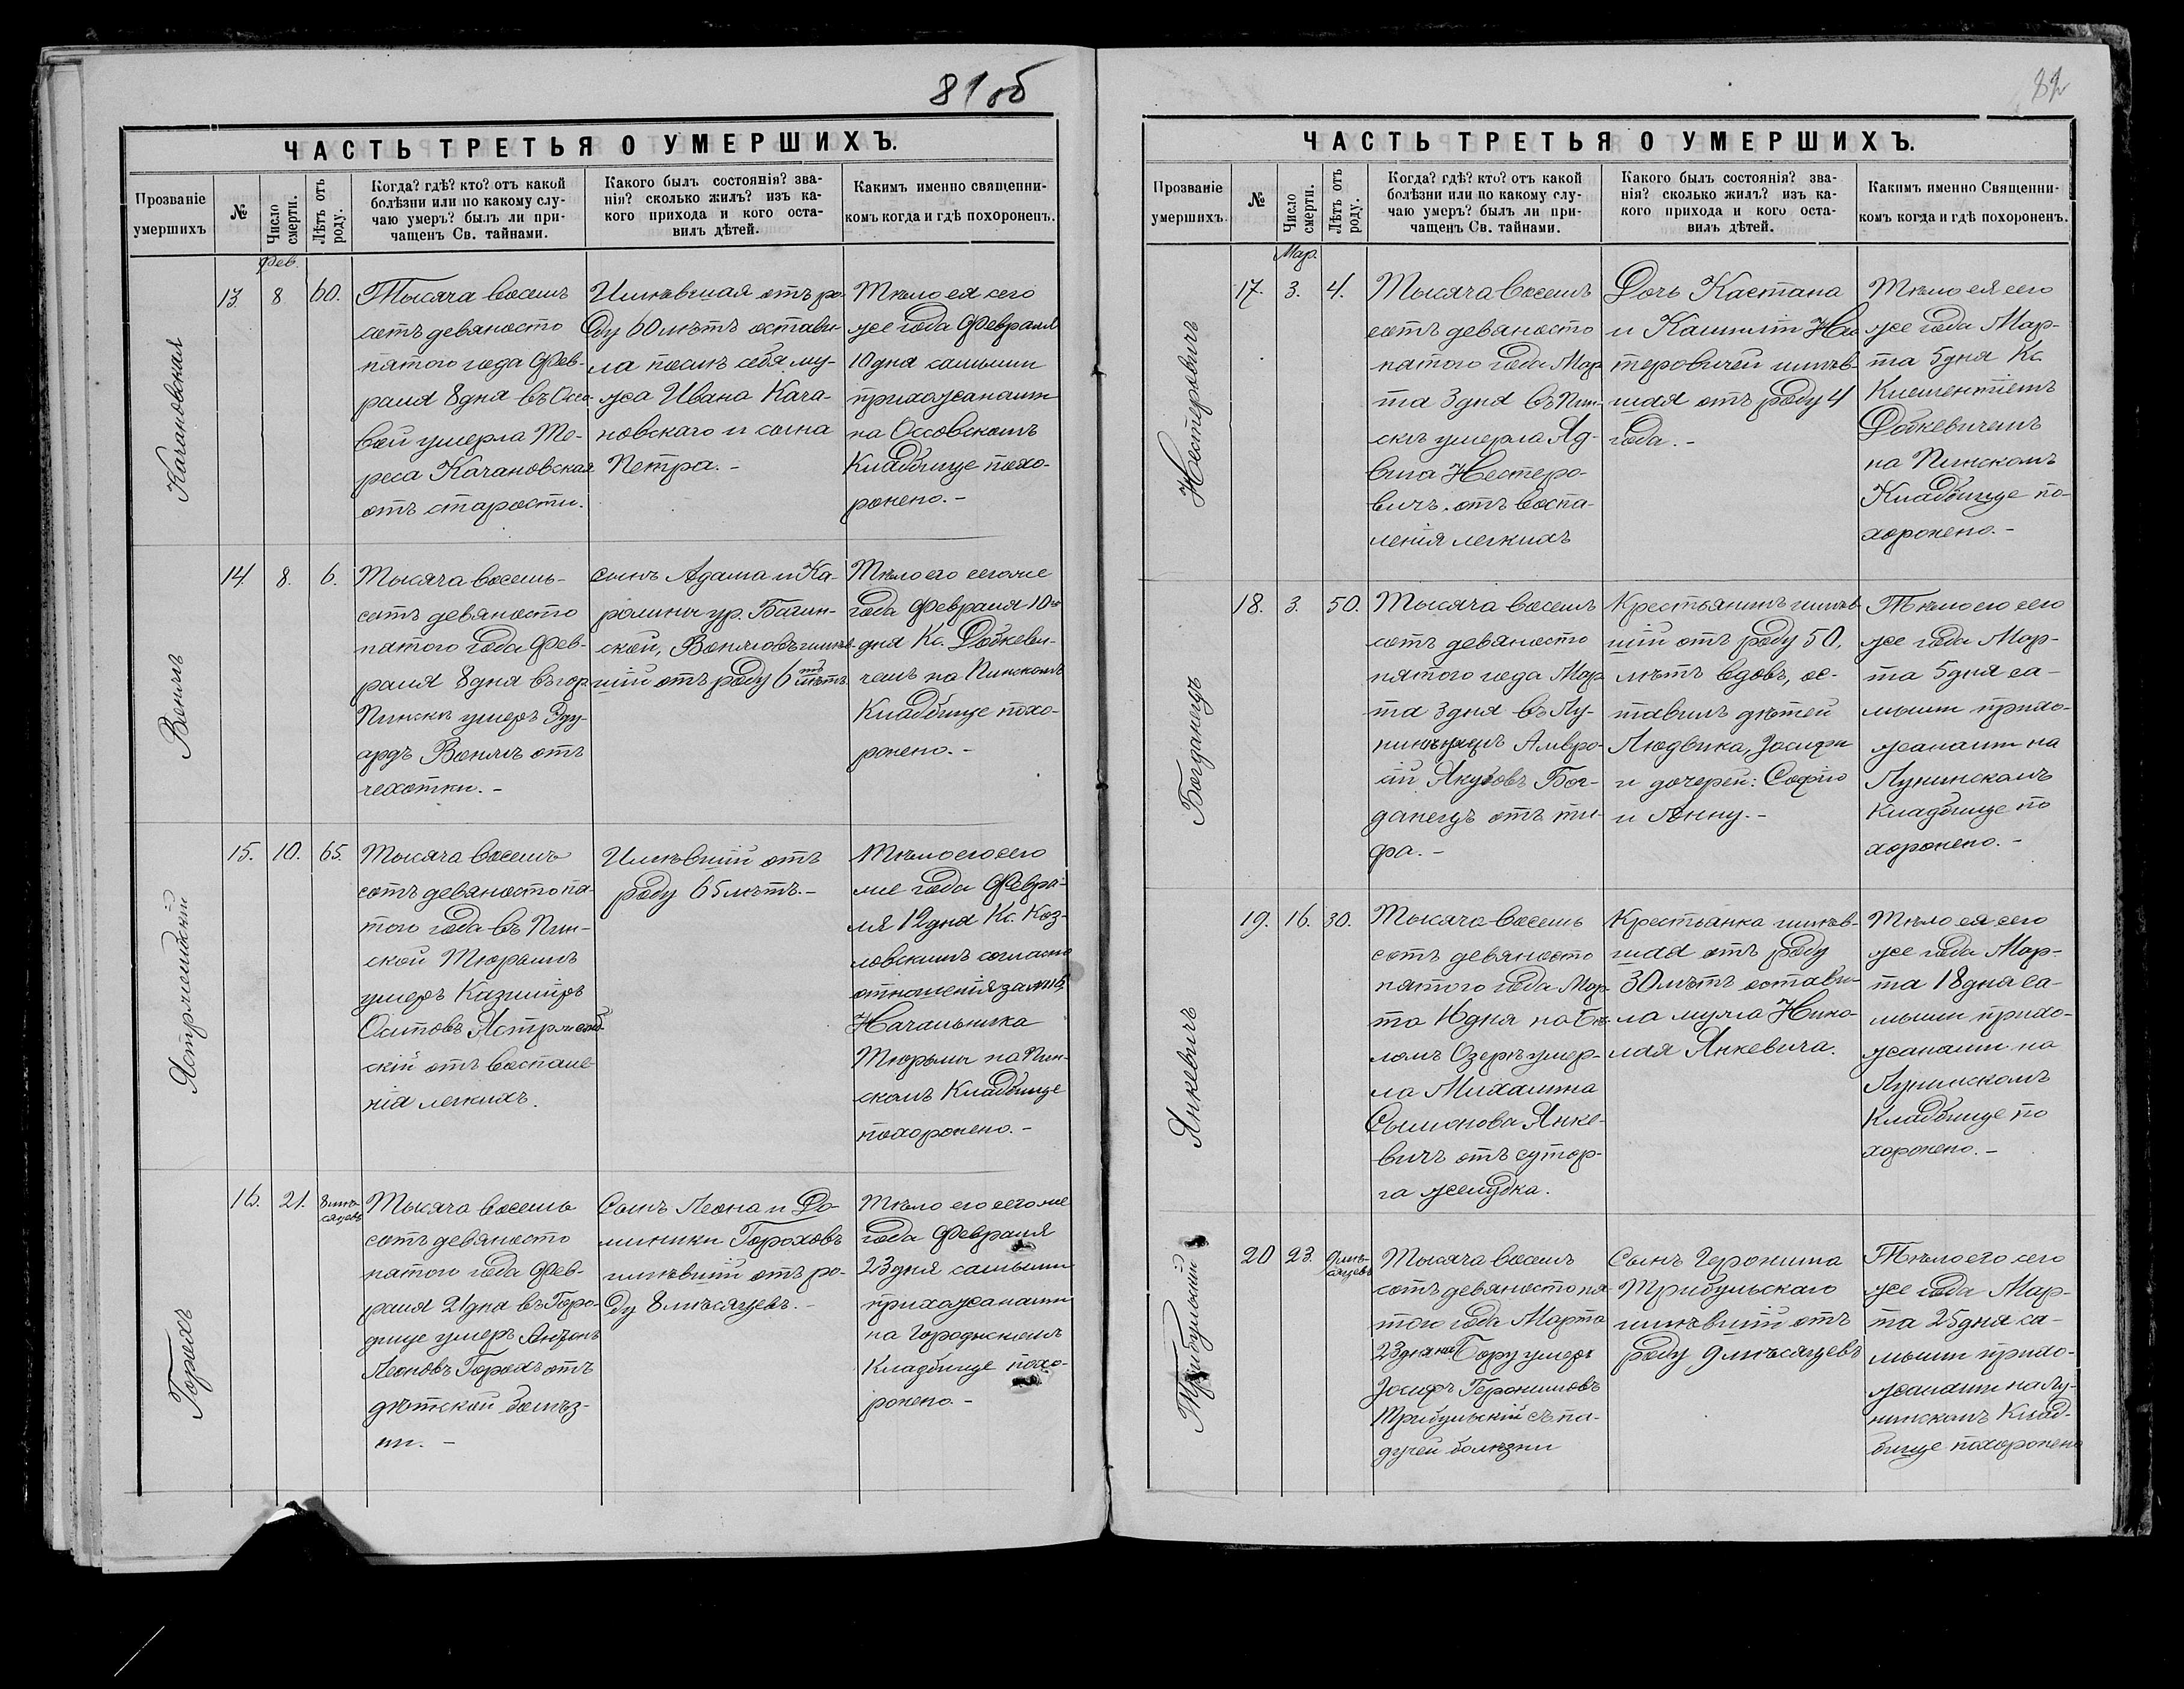 81об
ЧАСТЬ ТРЕТЬЯ О УМЕРШИХЪ.
Прозваніе
умершихъ
№
Число
смерти.
Лѣтъ отъ
роду.
Когда? гдѣ? кто? отъ какой
болѣзни или по какому слу-
чаю умеръ? былъ ли при-
чащенъ Св. тайнами.
Какого былъ состоянія? зва-
нія? сколько жилъ? изъ ка-
кого прихода и кого оста-
вилъ дѣтей.
Какимъ именно священни-
комъ когда и гдѣ похороненъ.
Фев.
Качановская
13
8
60.
Тысяча восемь
сотъ девяносто
пятого года Фев-
раля 8 дня въ Оссо-
вой умерла Те-
реса Качановская
отъ старости.
Имѣвшая отъ ро-
ду 60 лѣтъ остави-
ла послѣ себя му-
жа Ивана Кача-
новскаго и сына
Петра. -
Тѣло ея сего
же года Февраля
10 дня самыми
прихожанами
на Оссовскомъ
Кладбище похо-
ронено. -
14
8.
6.
Тысяча восемь-
сотъ девяносто
пятого года Фев-
раля 8 дня въ гор
Пинскѣ умеръ Эду-
ардъ отъ
чехотки. -
сынъ Адама и Ка-
ролины ур. Багин-
ской,
шій отъ роду 6 лѣтъ
Тѣло его сего же
года Февраля 10го
дня Кс. Добкеви-
чемъ на Пинскомъ
Кладбище похо-
ронено. -
15.
10.
65.
Тысяча восемь
сотъ девяносто пя-
того года въ Пин-
ской Тюрьмѣ
умеръ Казиміръ
Осиповъ
скій отъ воспале-
нія легкихъ.
Имѣвшій отъ
роду 65 лѣтъ. -
Тѣло его сего
же года Февра-
ля 12 дня Кс. Коз-
ловскимъ согласно
отношенія за №
Начальника
Тюрьмы на Пин-
скомъ Кладбище
похоронено. -
Горохъ
16.
21.
8 мѣ-
сяцевъ
Тысяча восемь
сотъ девяносто
пятого года Фев-
раля 21 дня въ Горо-
дище умеръ Антонъ
Леоновъ Горохъ отъ
дѣтской болѣз-
ни. -
Сынъ Леона и До-
миники Гороховъ
имѣвшій отъ ро-
ду 8 мѣсяцевъ. -
Тѣло его сего же
года Февраля
23 дня самыми
прихожанами
на Городискомъ
Кладбище похо-
ронено. -
82
ЧАСТЬ ТРЕТЬЯ О УМЕРШИХЪ.
Прозваніе
умершихъ.
№
Число
смерти.
Лѣтъ отъ
роду.
Когда? гдѣ? кто? отъ какой
болѣзни или по какому слу-
чаю умеръ? былъ ли при-
чащенъ Св. тайнами.
Какого былъ состоянія? зва-
нія? сколько жилъ? изъ ка-
кого прихода и кого оста-
вилъ дѣтей.
Какимъ именно Священни-
комъ когда и гдѣ похороненъ.
Мар.
Нестеровичъ
17.
3.
4.
Тысяча восемь
сотъ девяносто
пятого года Мар
та 3 дня въ Пин-
скѣ умерла Яд-
вига Нестеро-
вичъ. отъ воспа-
ленія легкихъ
Дочь Каетана
и Камиліи Нес
теровичей имѣв-
шая отъ роду 4
года. -
Тѣло ея сего
же года Мар-
та 5 дня Кс.
Клементіемъ
Добкевичемъ
на Пинскомъ
Кладбище по-
хоронено. -
Богданецъ
18.
3.
50.
Тысяча восемь
сотъ девяносто
пятого года Мар
та 3 дня въ Лу-
Амвро-
сій Якубовъ Бог-
данецъ отъ ти-
фа. -
Крестьянинъ имѣв
шій отъ роду 50.
лѣтъ вдовъ, ос-
тавилъ дѣтей
Людвика, Іосифа
и дочерей: Софію
и Анну. -
Тѣло его сего
же года Мар-
та 5 дня са-
мыми прихо-
жанами на
Лунинскомъ
Кладбище по
хоронено. -
Янкевичъ
19.
16.
30.
Тысяча восемь
сотъ девяносто
пятого года Мар-
та 16 дня на Бѣ-
ломъ Озерѣ умер-
ла Михалина
Сымонова Янке-
вичъ отъ сутор-
га желудка.
Крестьянка имѣв-
шая отъ роду
30 лѣтъ остави-
ла мужа Нико-
лая Янкевича.
Тѣло ея сего
же года Мар-
та 18 дня са-
мыми прихо-
жанами на
Лунинскомъ
Кладбище по
хоронено. -
Трибульскій
20
23.
9 мѣ-
сяцевъ
Тысяча восемь
сотъ девяносто пя
того года Марта
23 дня на Бору умеръ
Іосифъ Геронимовъ
Трибульскій съ па-
дучей болѣзни
Сынъ Геронима
Трибульскаго
имѣвшій отъ
роду 9 мѣсяцевъ
Тѣло его сего
же года Мар-
та 25 дня са-
мыми прихо-
жанами на Лу-
нинскомъ Клад-
бище похоронено